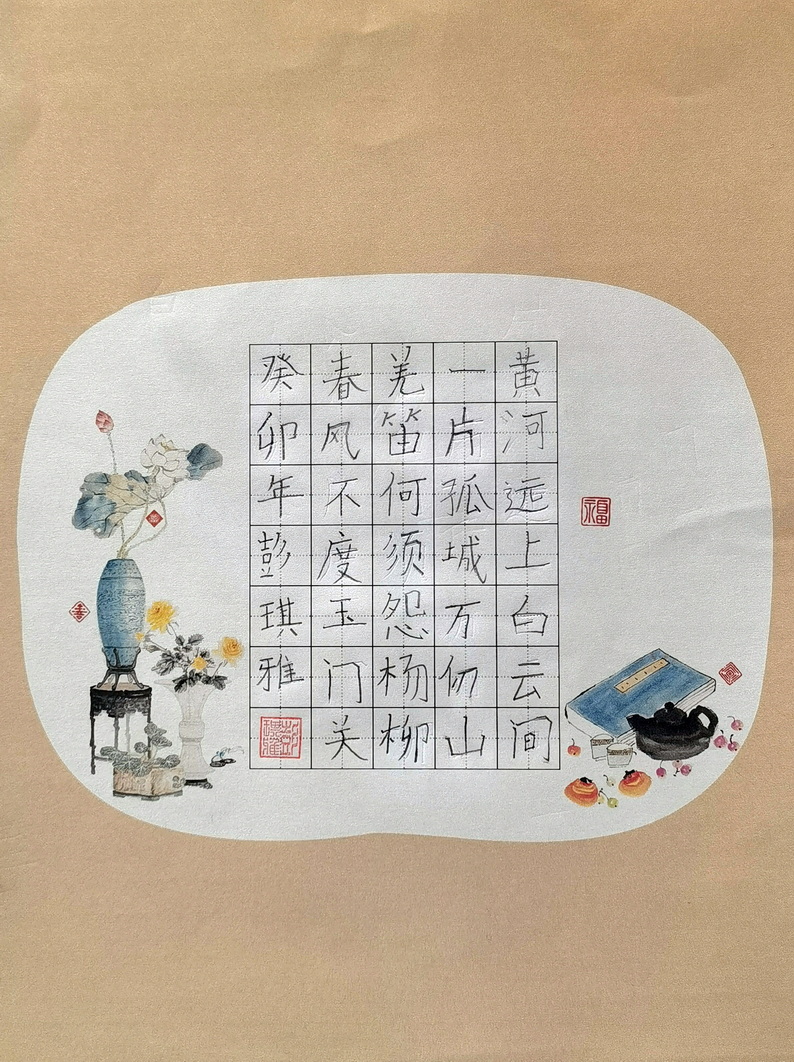 黄河远上白云间
一片孤城万仞山
羌笛何须怨杨柳
春风不度玉门关
癸卯年彭琪雅
福